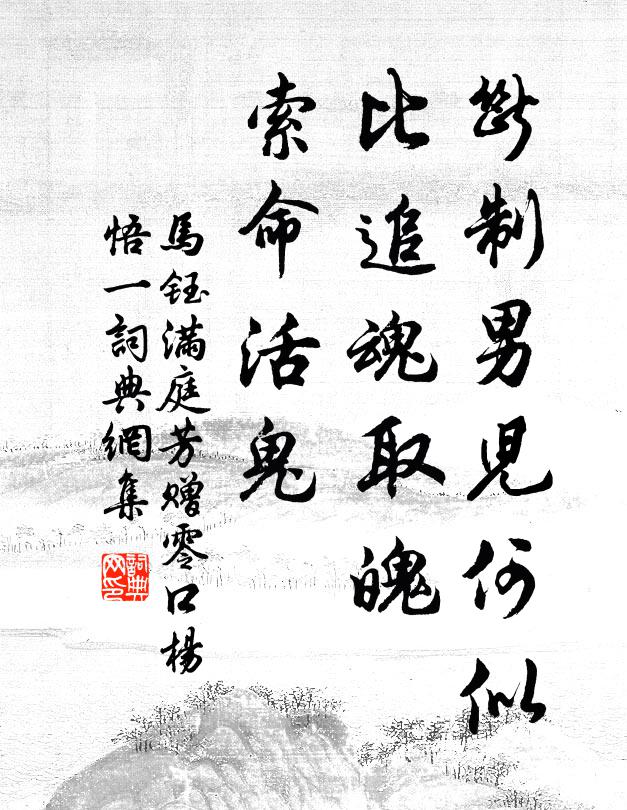 斷制男兒何似
比追魂取魄
索命活鬼
馬鈺滿庭芳贈零口楊
悟一詞典網集
詞典
网印